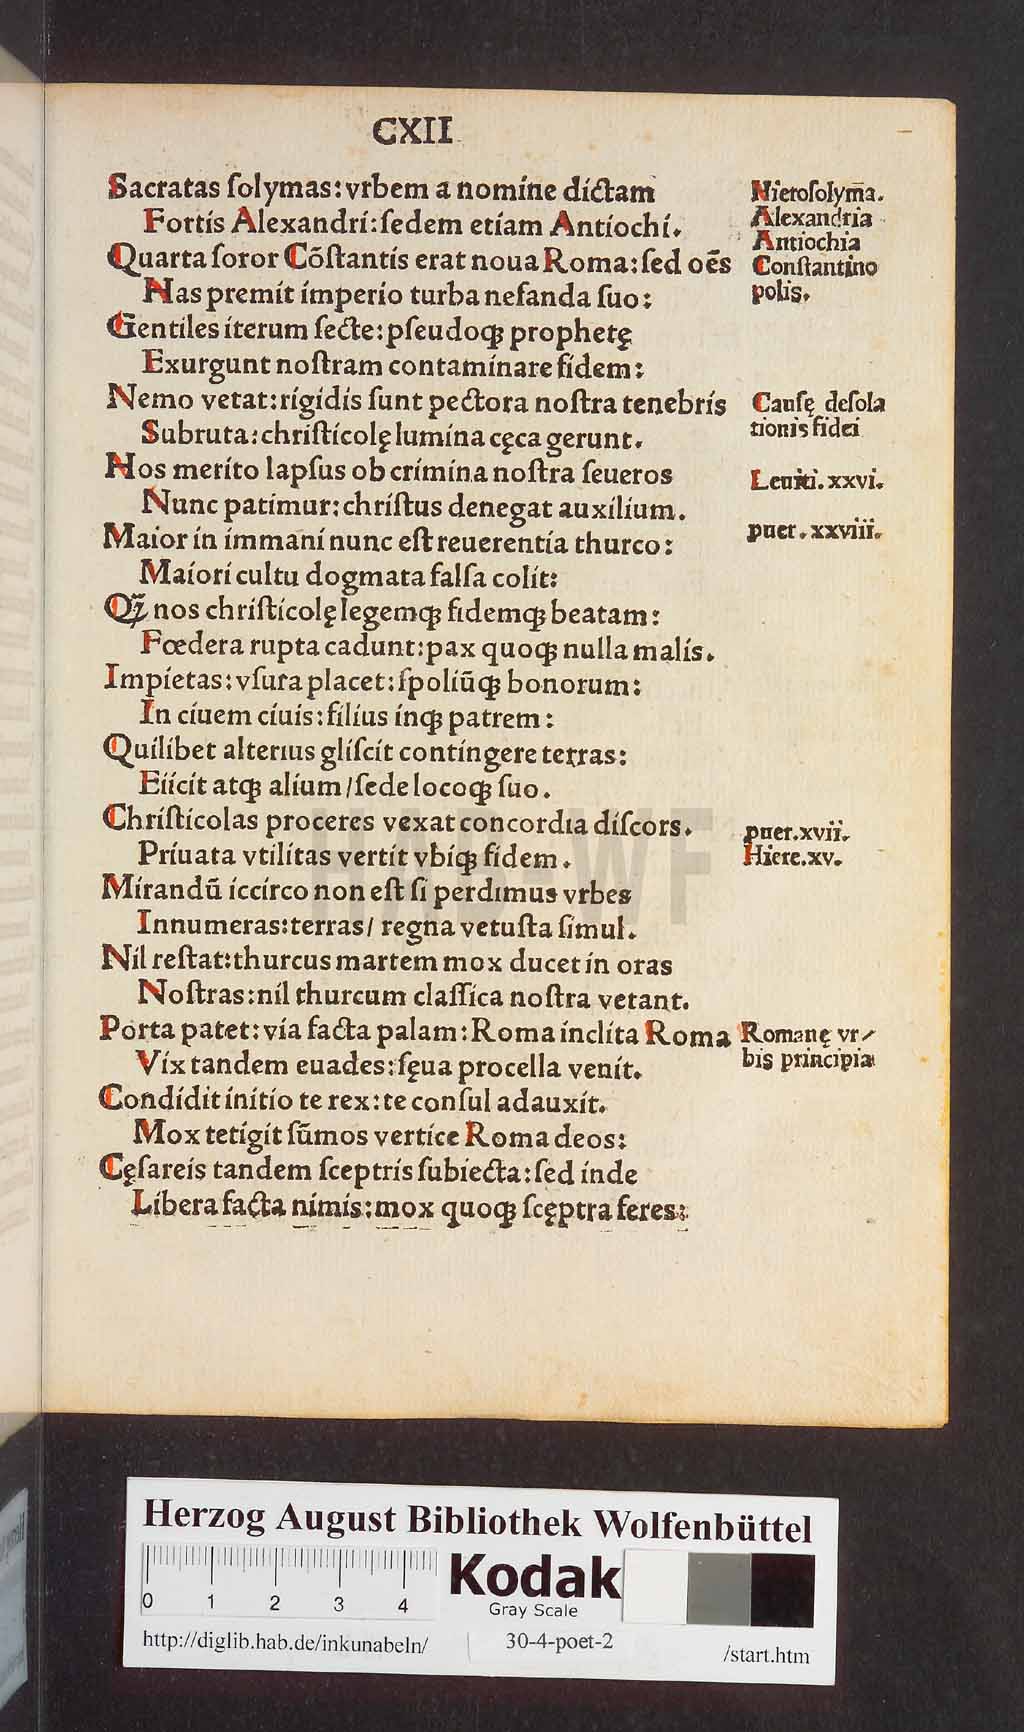 CXII
Sacratas ſolymas: vrbem a nomine dictam
Fortis Alexandri: ſedem etiam Antiochi.
Quarta ſoror Cõſtantis erat noua Roma: ſed oẽs
Has premit imperio turba nefanda ſuo:
Gentiles iterum ſecte: pſeudoqꝫ prophetę
Exurgunt noſtram contaminare fidem:
Nemo vetat: rigidis ſunt pectora noſtra tenebris
Subruta: chriſticolę lumina cęca gerunt.
Nos merito lapſus ob crimina noſtra ſeueros
Nunc patimur: chriſtus denegat auxilium.
Maior in immani nunc eſt reuerentia thurco:
Maiori cultu dogmata falſa colit:
Qꝫ̃ nos chriſticolę legemqꝫ fidemqꝫ beatam:
Fœdera rupta cadunt: pax quoqꝫ nulla malis.
Impietas: vſura placet: ſpoliũqꝫ bonorum:
In ciuem ciuis: filius inqꝫ patrem:
Quilibet alterius gliſcit contingere terras:
Eiicit atqꝫ alium / ſede locoqꝫ ſuo.
Chriſticolas proceres vexat concordia diſcors.
Priuata vtilitas vertit vbiqꝫ fidem.
Mirandũ iccirco non eſt ſi perdimus vrbes
Innumeras: terras / regna vetuſta ſimul.
Nil reſtat: thurcus martem mox ducet in oras
Noſtras: nil thurcum claſſica noſtra vetant.
Porta patet: via facta palam: Roma inclita Roma
Vix tandem euades: ſęua procella venit.
Condidit initio te rex: te conſul adauxit.
Mox tetigit ſũmos vertice Roma deos:
Cęſareis tandem ſceptris ſubiecta: ſed inde
Libera facta nimis: mox quoqꝫ ſcęptra feres:
Hieroſolym̃a.
Alexandria
Antiochia
Conſtantino
polis.
Cauſę deſola
tionis fidei
Leuiti. xxvi.
puer. xxviii.
puer. xvii.
Hiere. xv.
Romanę vr⸗
bis principia
HAB-WF
Herzog August Bibliothek Wolfenbüttel
0 1 2 3 4
Kodak
Gray Scale
http://diglib.hab.de/inkunabeln/
30-4-poet-2
/start.htm